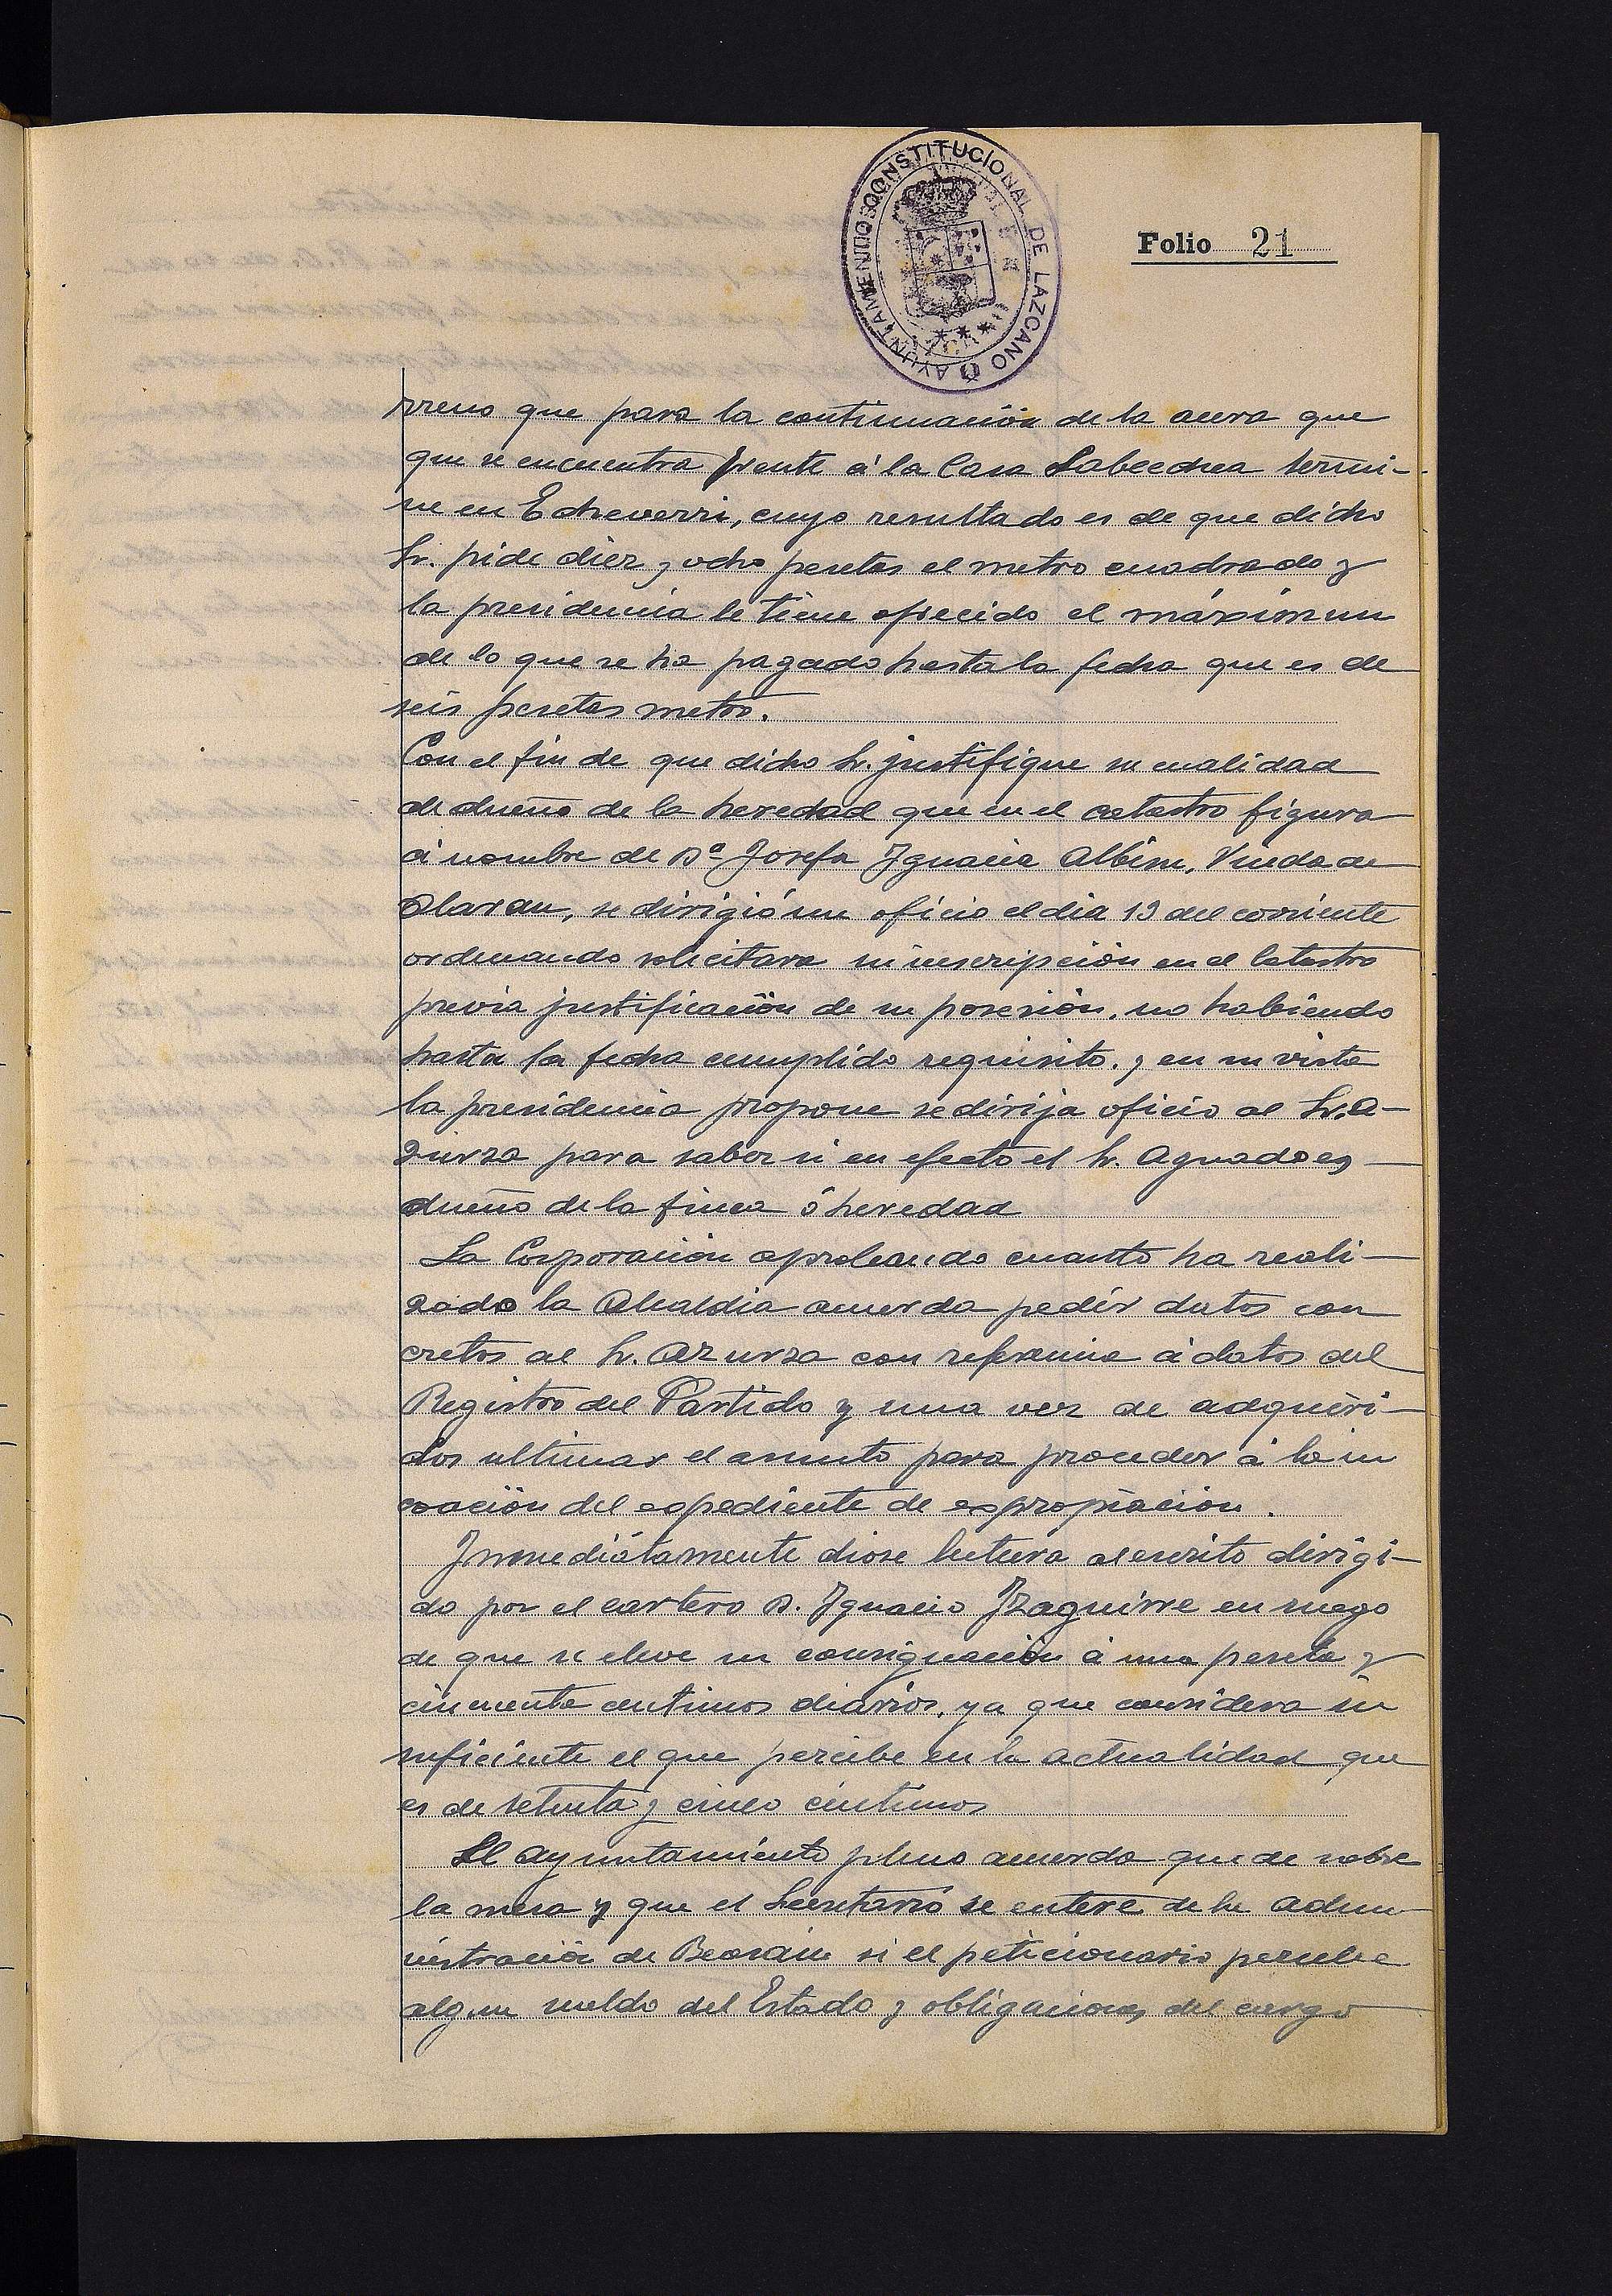 AYUNTAMIENTO CONSTITUCIONAL DE LAZCANO
Folio 21
rreno que para la continuación de la acera que
que se encuentra frente á la Casa Sabeechea termi-
ne en Echeverri, cuyo resultado es de que dicho
Sr. pide diez y ocho pesetas el metro cuadrado y
la presidencia le tiene ofrecido el máximun
de lo que se ha pagado hasta la fecha que es de
seis pesetas metro.
Con el fin de que dicho Sr. justifique su cualidad
de dueño de la heredad que en el catastro figura
á nombre de Dª Josefa Ygnacia Albisu, Viuda de
Olaran, se dirigió un oficio el dia 19 del corriente
ordenando solicitara su inscripción en el Catastro
previa justificación de su posesión, no habiendo
hasta la fecha cumplido requisito, y en su vista
la presidencia propone se dirija oficio al Sr. A-
zurza para saber si en efecto el Sr. Aguado es
dueño de la finca ó heredad
La Corporación aprobando cuanto ha reali-
zado la Alcaldia acuerda pedir datos con
cretos al Sr. Azurza con referencia á datos del
Registro del Partido y una vez de adquiri-
dos ultimar el asunto para proceder á la in
coación del expediente de expropiación.
Ynmediátamente diose lectura al escrito dirigi-
do por el cartero D. Ygnacio Yzaguirre en ruego
de que se eleve su consignación á una peseta y
cincuenta centimos diarios, ya que considera in
suficiente el que percibe en la actualidad que
es de setenta y cinco céntimos
El Ayuntamiento pleno acuerda quede sobre
la mesa y que el Secretario se entere de la Adm
nistración de Beasain si el peticionario percibe
algun sueldo del Estado y obligaciones del cargo